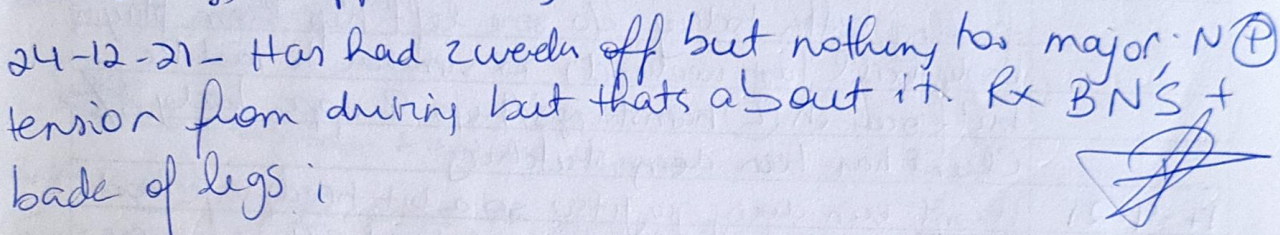 24-12-21- Has had 2 weeks off but nothing too major; N Ⓟ
tension from driving but thats about it. Rx BNS +
back of legs ;